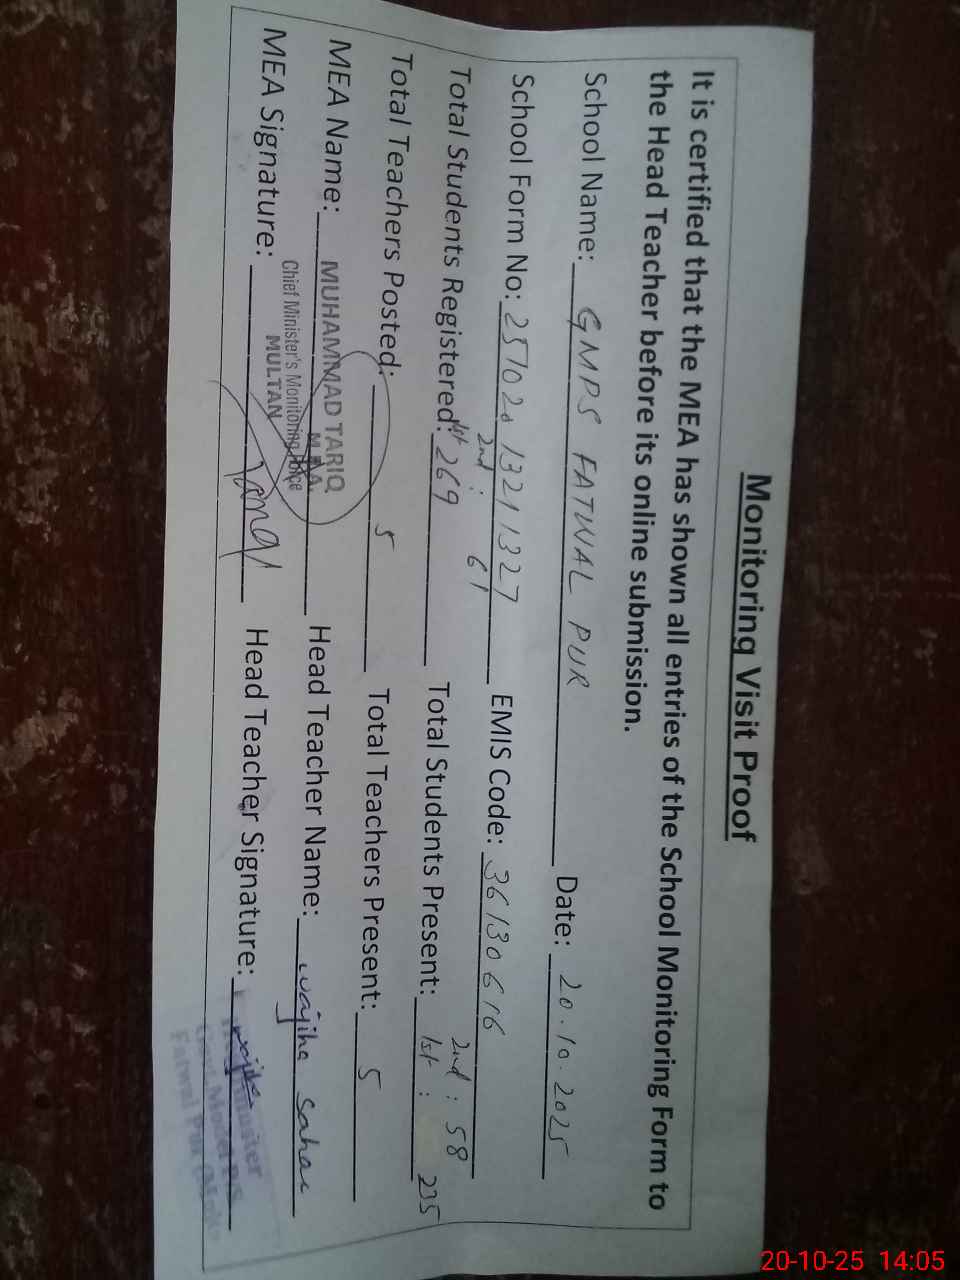 Monitoring Visit Proof
It is certified that the MEA has shown all entries of the School Monitoring Form to
the Head Teacher before its online submission.
School Name: GMPS FATWAL PUR Date: 20.10.2025
School Form No: 2510201321327 EMIS Code: 36130616
2nd: 61 2nd: 58
Total Students Registered: 1st 269 Total Students Present: 1st: 235
Total Teachers Posted: 5 Total Teachers Present: 5
MEA Name: MUHAMMAD TARIQ Head Teacher Name: wajiha sahar
M.E.A.
Chief Minister's Monitoring Force
MULTAN
MEA Signature: Tariq Head Teacher Signature: wajiha
Fatwal Pur
20-10-25 14:05